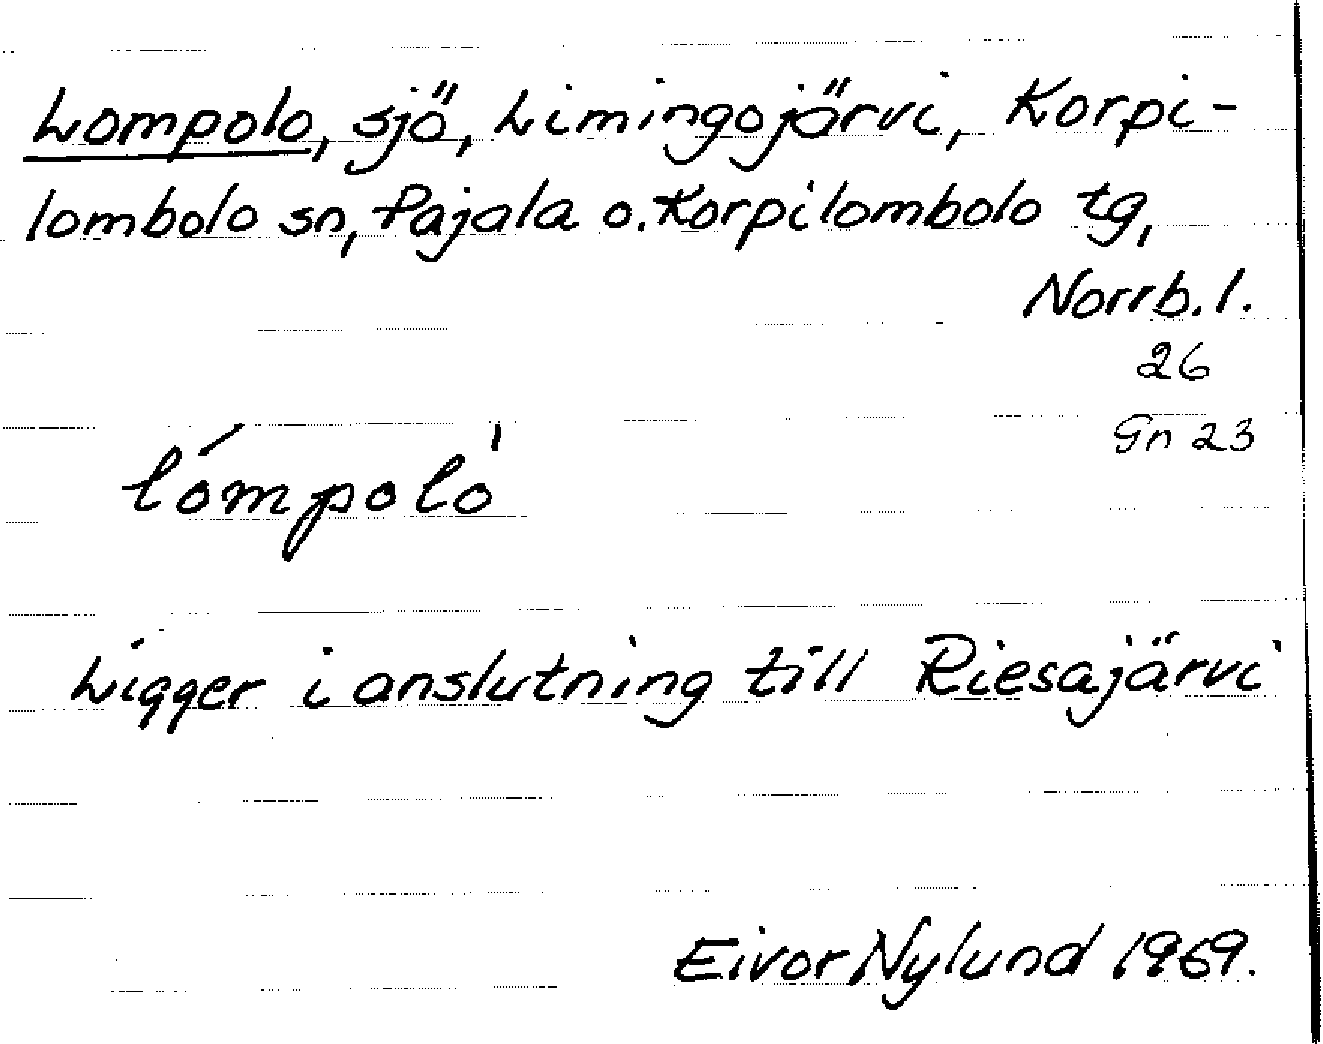 Lompolo, sjö, Limingojärvi, Korpi-
lombolo sn, Pajala o. Korpilombolo tg,
Norrb. l.
26
Gn 23
lómpolò
Ligger i anslutning till Riesajärvi
Eivor Nylund 1969.